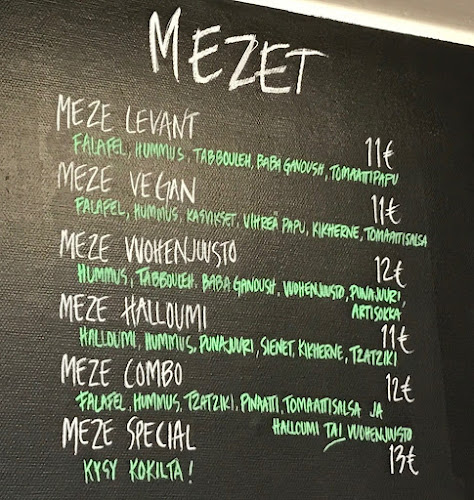 MEZET
MEZE LEVANT 11€
FALAFEL, HUMMUS, TABBOULEH, BABA GANOUSH, TOMAATTIPAPU
MEZE VEGAN 11€
FALAFEL, HUMMUS, KASVIKSET, VIHREÄ PAPU, KIKHERNE, TOMAATTISALSA
MEZE VUOHENJUUSTO 12€
HUMMUS, TABBOULEH, BABA GANOUSH, VUOHENJUUSTO, PUNAJUURI,
ARTISOKKA
MEZE HALLOUMI 11€
HALLOUMI, HUMMUS, PUNAJUURI, SIENET, KIKHERNE, TZATZIKI
MEZE COMBO 12€
FALAFEL, HUMMUS, TZATZIKI, PINAATTI, TOMAATTISALSA JA
HALLOUMI TAI VUOHENJUUSTO
MEZE SPECIAL 13€
KYSY KOKILTA!